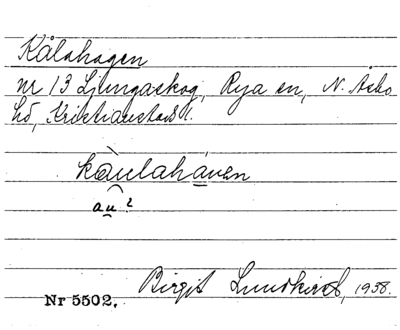 Kålahagen
nr 13 Ljungaskog, Rya sn, N. Åsbo
hd, Kristianstads l.
kàulahá̱ven
au̱?
Birgit Lundkvist, 1938.
Nr 5502.